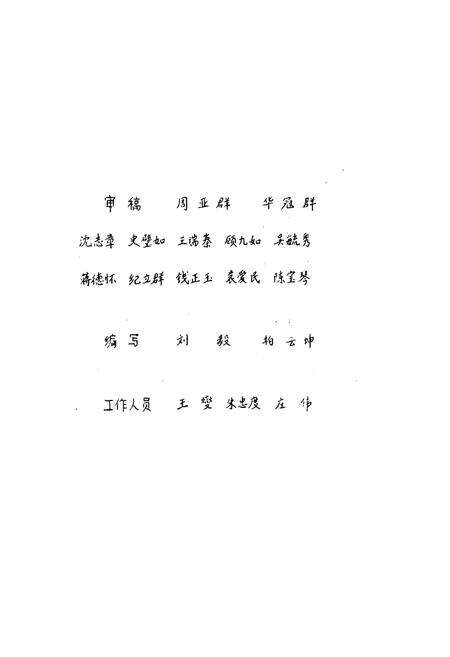 审稿 周亚群 华冠群
沈志章 史璧如 王瑞泰 顾九如 吴毓秀
蒋德怀 纪立群 钱正玉 袁爱民 陈宝琴
编写 刘毅 柏云坤
工作人员 王燮 朱忠度 庄伟